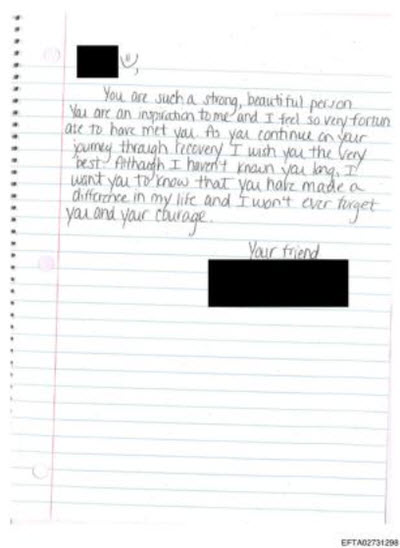 ,
You are such a strong, beautiful person
You are an inspiration to me and I feel so very fortun
ate to have met you. As you continue on your
journey through recovery I wish you the very
best. Although I haven't known you long, I
want you to know that you have made a
difference in my life and I won't ever forget
you and your courage.
Your friend
EFTA02731298